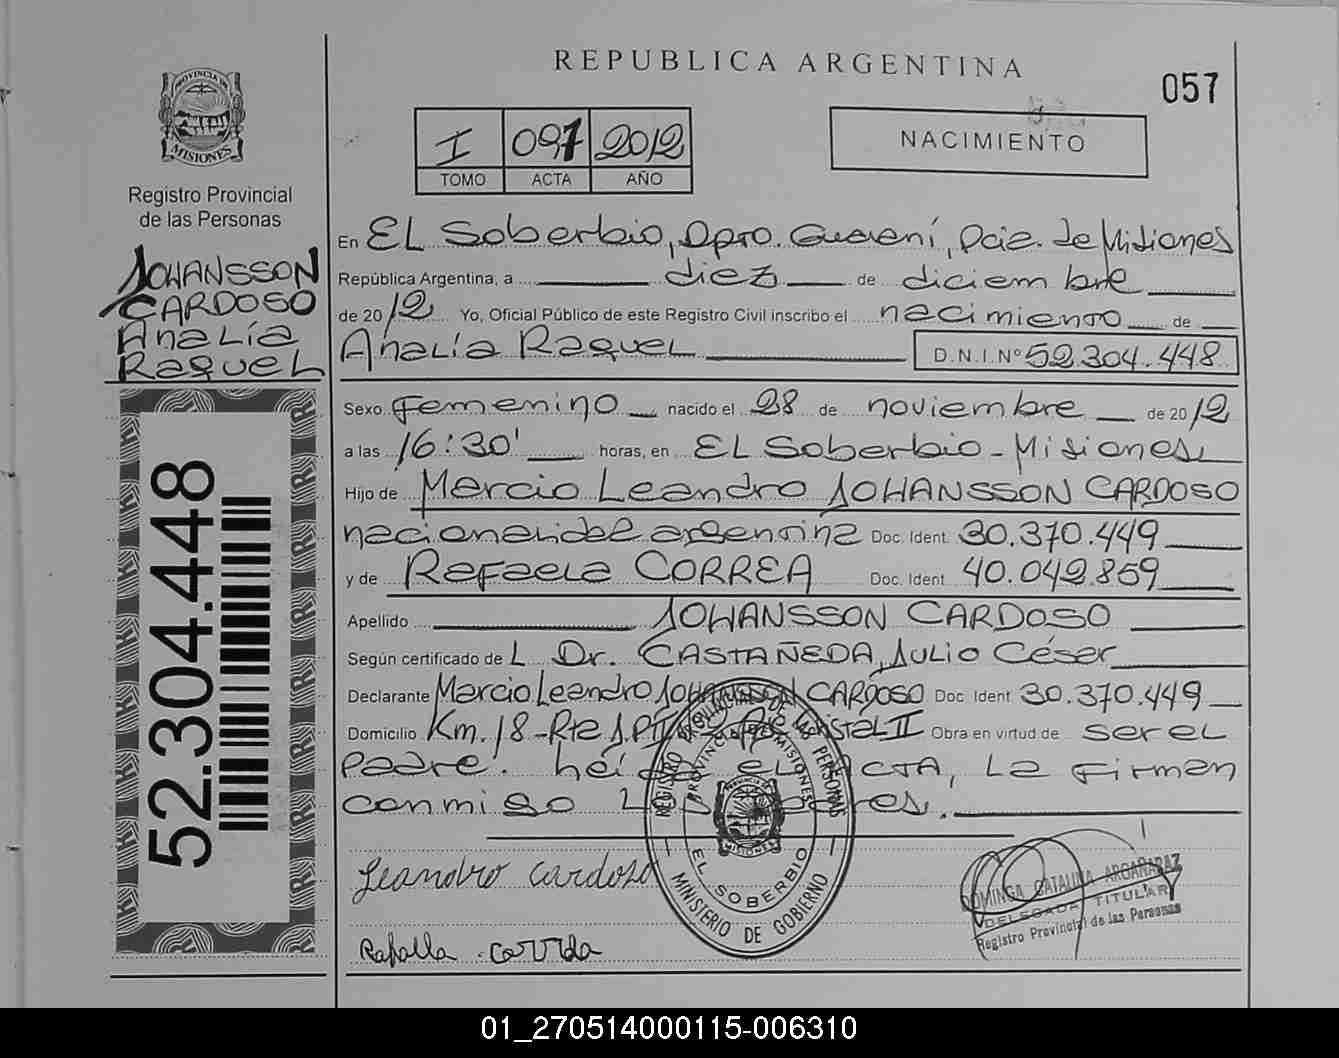 REPUBLICA ARGENTINA
057
PROVINCIA DE MISIONES
Registro Provincial
de las Personas
JOHANSSON
CARDOSO
Analía
Raquel
52.304.448
I 097 2012
TOMO ACTA AÑO
NACIMIENTO
En EL Soberbio, Dpto. Guaraní, Pcia. de Misiones
República Argentina, a diez de diciembre
de 2012 Yo, Oficial Público de este Registro Civil inscribo el nacimiento de
Analía Raquel D.N.I.Nº 52.304.448
Sexo Femenino nacido el 28 de noviembre de 2012
a las 16:30' horas, en EL Soberbio - Misiones
Hijo de Marcio Leandro JOHANSSON CARDOSO
nacionalidad argentina Doc. Ident. 30.370.449
y de Rafaela CORREA Doc. Ident 40.042.859
Apellido JOHANSSON CARDOSO
Según certificado de L Dr. CASTAÑEDA, Julio César
Declarante Marcio Leandro JOHANSSON CARDOSO Doc. Ident 30.370.449
Domicilio Km. 18 - Rta 1. II Obra en virtud de ser el
padre. el ACTA, La firman
conmigo
REGISTRO PROVINCIAL DE LAS PERSONAS
PROVINCIA DE MISIONES
MISIONES
EL SOBERBIO
MINISTERIO DE GOBIERNO
Leandro Cardoso
Rafaella Correa
DOMINGA CATALINA ARGAÑARAZ
DELEGADA TITULAR
Registro Provincial de las Personas
01_270514000115-006310